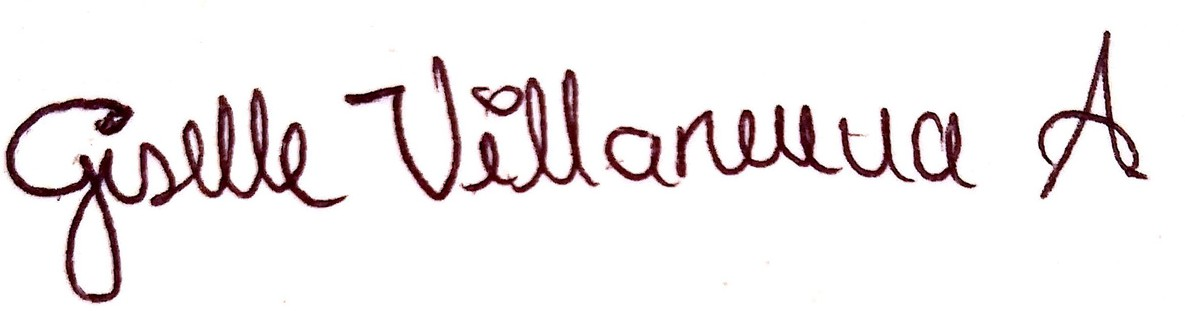 Giselle Villanueva A